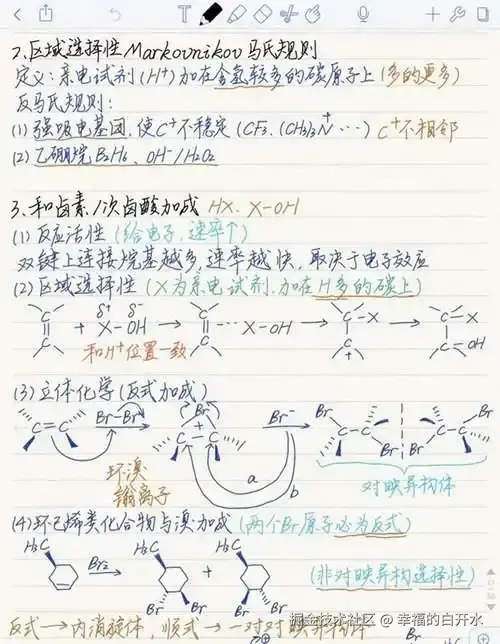 2.区域选择性 Markovnikov 马氏规则
定义:亲电试剂(H⁺)加在含氢较多的碳原子上(多的更多)
反马氏规则:
(1) 强吸电基团,使C⁺不稳定 (CF₃, (CH₃)₃N⁺ …) C⁺不相邻
(2) 乙硼烷 B₂H₆, OH⁻/H₂O₂
3.和卤素/次卤酸加成 HX, X-OH
(1) 反应活性 (给电子,速率↑)
双键上连接烷基越多,速率越快,取决于电子效应
(2) 区域选择性 (X为亲电试剂,加在H多的碳上)
C C + δ⁺ δ⁻ X-OH → C C … X-OH → C-X C + → C-X C-OH
和H⁺位置一致
(3) 立体化学(反式加成)
C=C Br-Br Br + C-C Br⁻ Br C-C Br Br C-C Br
环溴
鎓离子
a
b
对映异构体
(4) 环己烯类化合物与溴加成 (两个Br原子必为反式)
H₃C Br₂ → H₃C Br Br + H₃C Br Br
(非对映异构选择性)
反式→内消旋体,顺式→一对对映异构体
掘金技术社区 @ 幸福的白开水